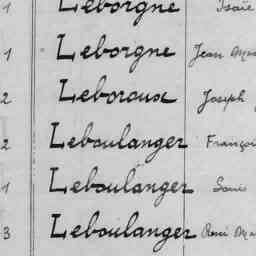 1 Leborgne Isaïe
1 Leborgne Jean
2 Leboroux Joseph
2 Leboulanger
1 Leboulanger Louis
3 Leboulanger René